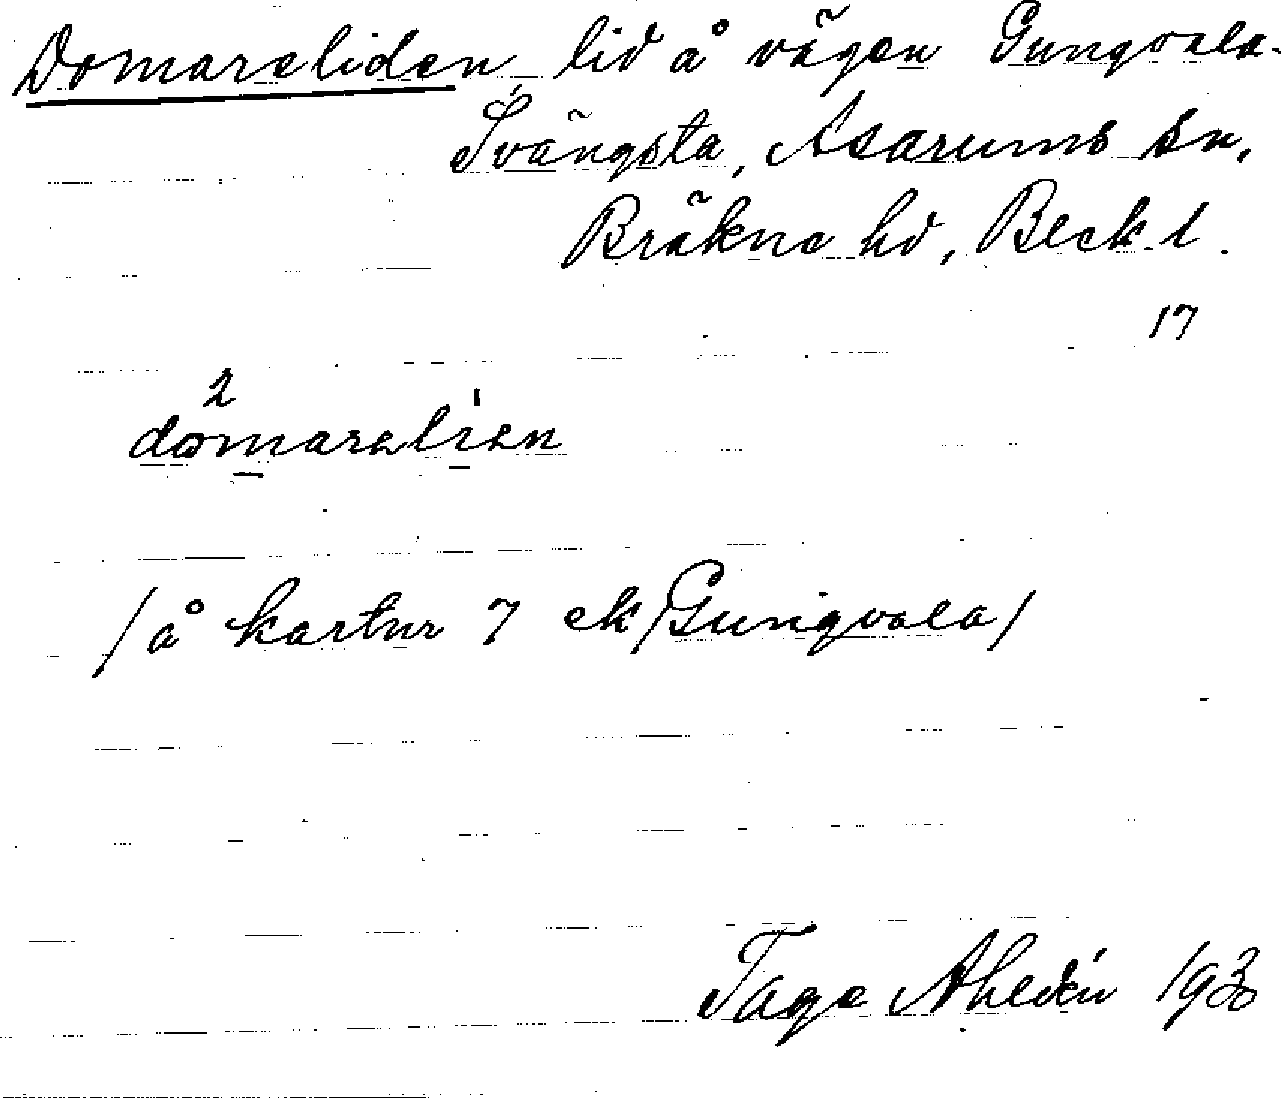 Domareliden, lid å vägen Gungvala-
Svängsta, Asarums sn,
Bräkne hd, Blek. l.
17
2
domaralien
/å kartnr 7 ek/Gungvala/
Tage 1930